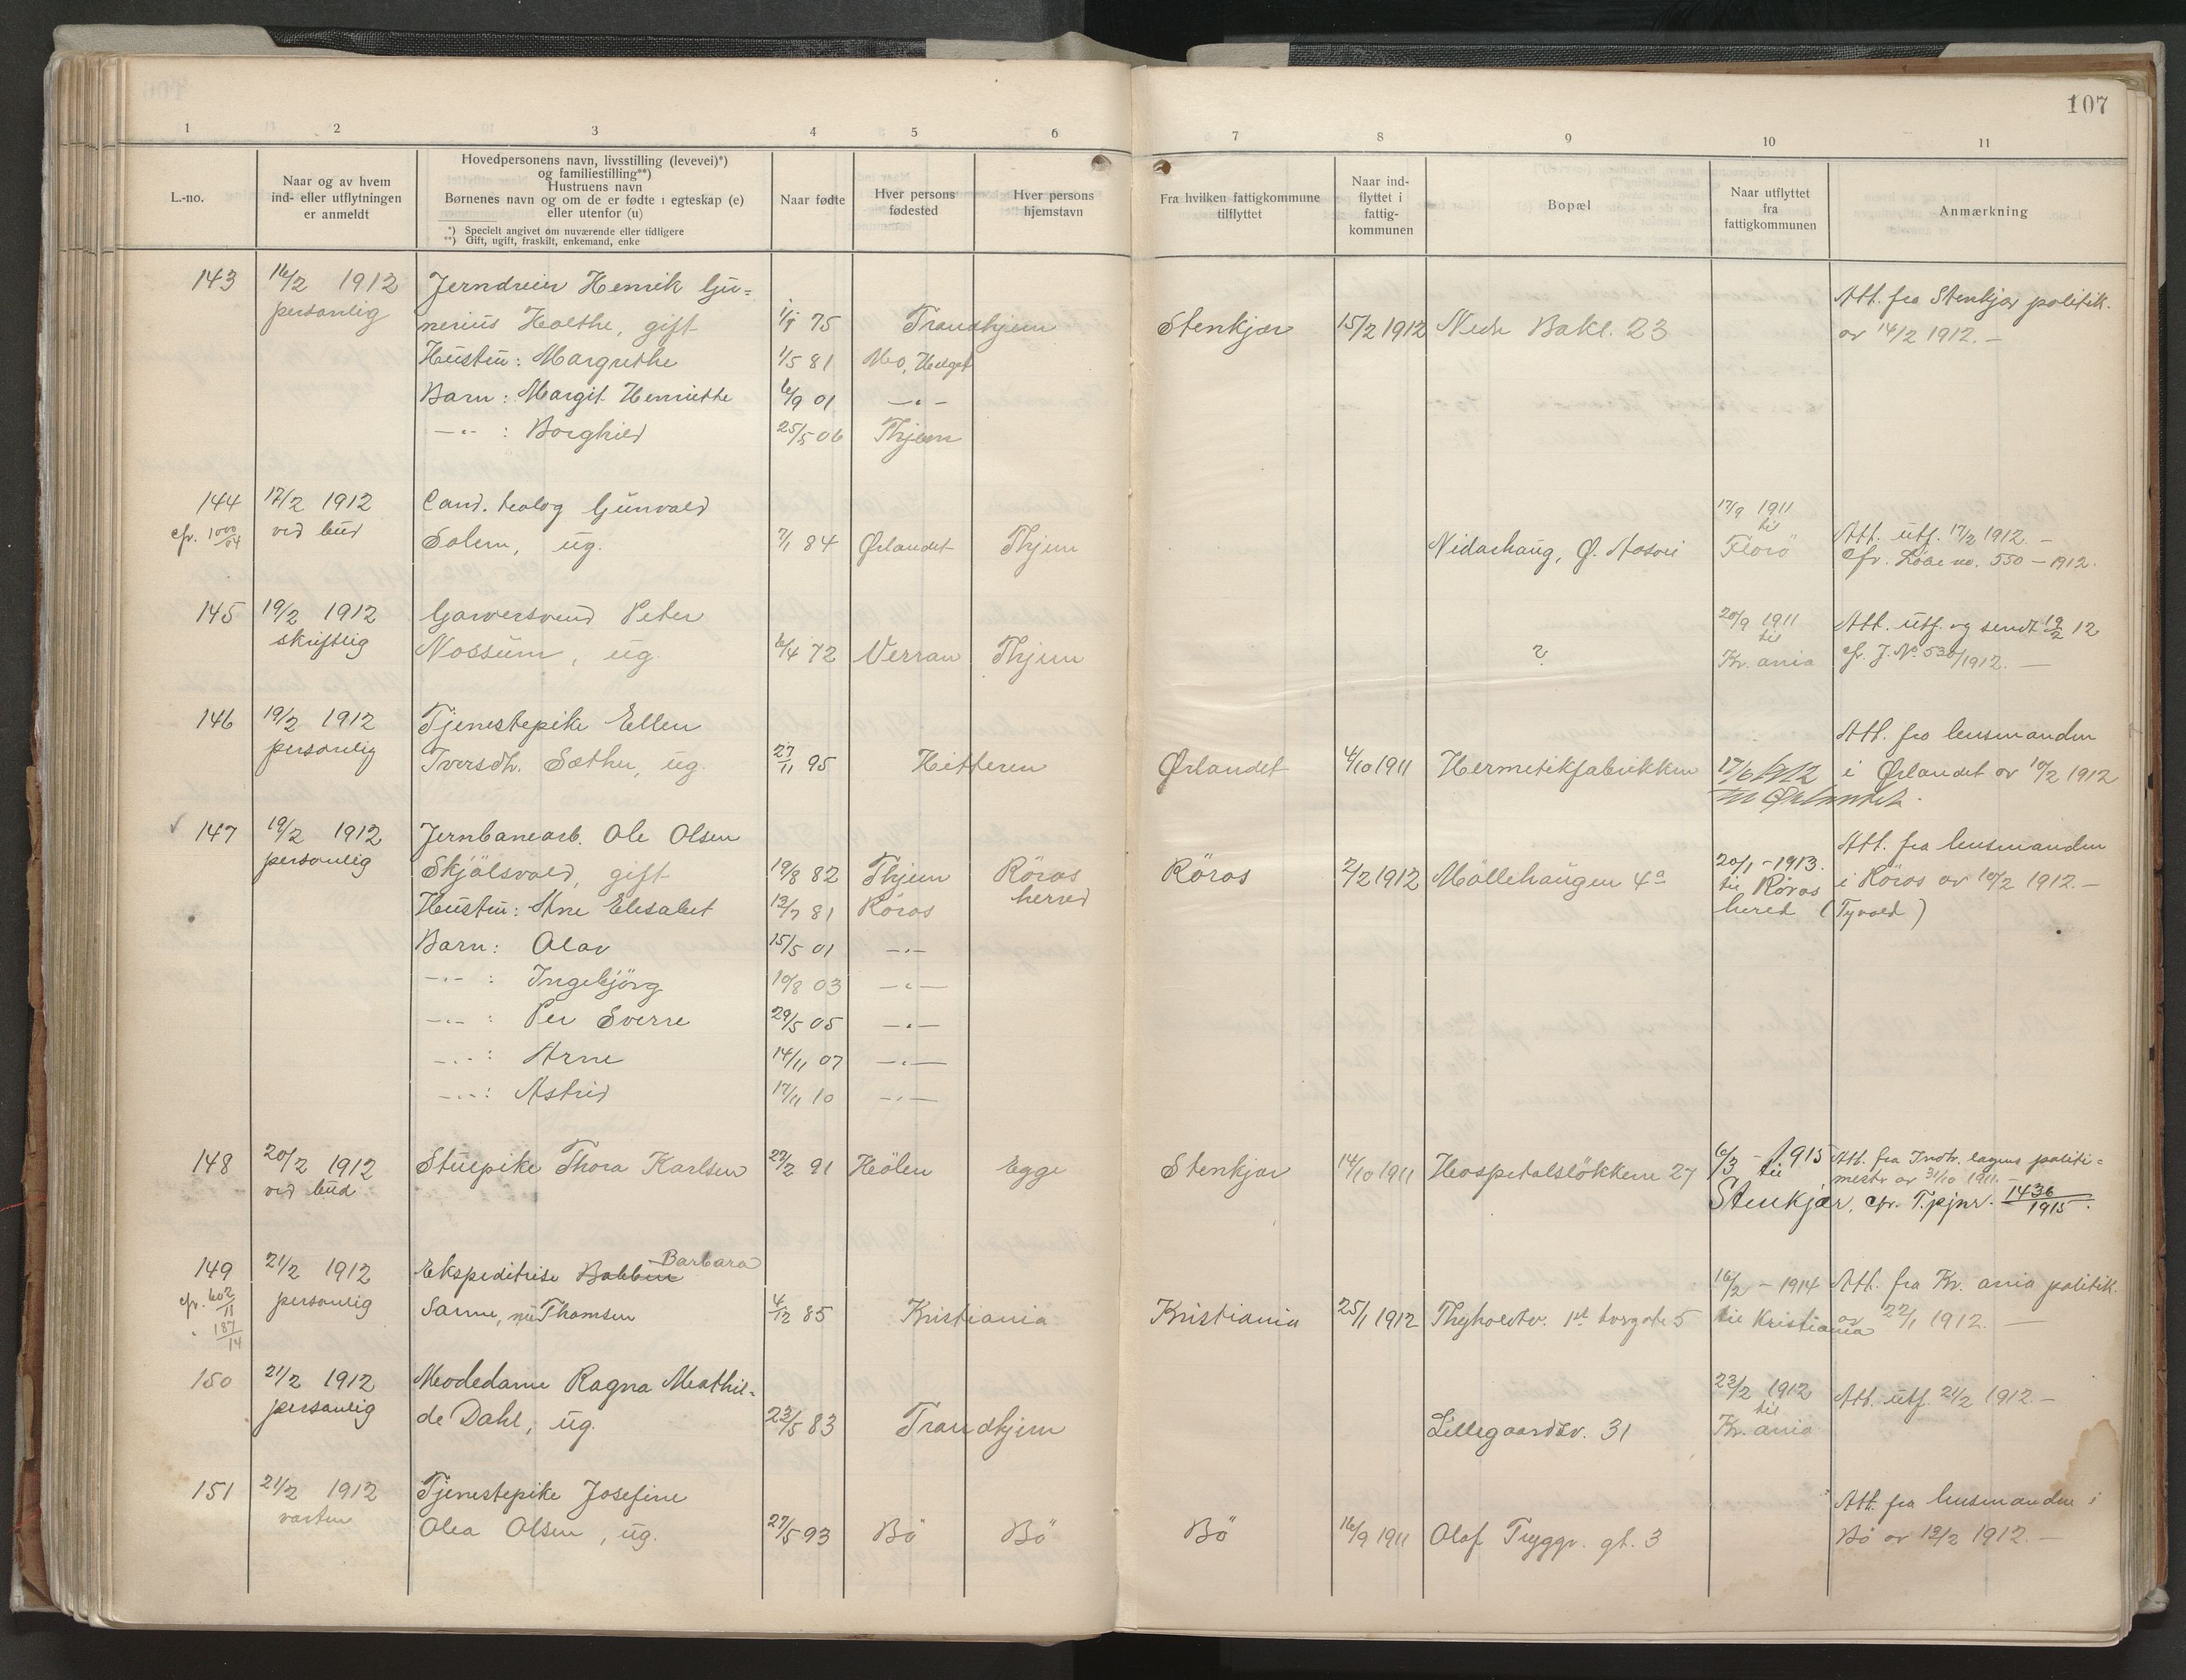 107
1 2 3 4 5 6 7 8 9 10 11
L.-no.
Naar og av hvem
ind- eller utflytningen
er anmeldt
Hovedpersonens navn, livsstilling (levevei)*)
og familiestilling**)
Hustruens navn
Børnenes navn og om de er fødte i egteskap (e)
eller utenfor (u)
*) Specielt angivet om nuværende eller tidligere
**) Gift, ugift, fraskilt, enkemand, enke
Naar fødte
Hver persons
fødested
Hver persons
hjemstavn
Fra hvilken fattigkommune
tilflyttet
Naar ind-
flyttet i
fattig-
kommunen
Bopæl
Naar utflyttet
fra
fattigkommunen
Anmærkning
143 16/2 1912 Jerndreier Henrik Gu=
personlig nerius Holthe, gift 75 Trondhjem Stenkjær 15/2 1912 Nedr Bakl. 23 Att. fra Stenkjær politik.
av 14/2 1912. —
Hustru: Margrethe 1/5 81 Mo,
Barn: Margit Henriette 6/9 01 —"—
—"— : Borghild 25/5 06 Thjem
144 17/2 1912 Cand. teolog Gunvald 17/9 1911
cfr. 1000/04 ved bud Solem, ug. 7/1 84 Ørlandet Thjem Nidarhaug, Ø. Aasvei til Florø Att. utf. 17/2 1912. —
cfr. no. 550 — 1912.
145 19/2 1912 Garversvend Peter 20/9 1911 Att. utf. og sendt 19/2 12
skriftlig Nossum, ug. 6/4 72 Verran Thjem ? til Kr.ania cfr. J. No 530/1912. —
146 19/2 1912 Tjenestepike Ellen Att. fra lensmanden
personlig Iversdt. Sæther, ug. 27/11 95 Hitteren Ørlandet 4/10 1911 Hermetikfabrikken 17/6 1912 i Ørlandet av 10/2 1912
til Ørlandet.
147 19/2 1912 Jernbanearb. Ole Olsen Att. fra lensmanden
personlig Skjölsvold, gift 19/8 82 Thjem Röros Röros 2/2 1912 Möllehaugen 4a 20/1 - 1913. i Röros av 10/2 1912. —
Hustru: Ane Elisabet 13/7 81 Röros herred til Röros
herred (Tyvold)
Barn: Olav 15/5 01 —"—
—"— : Ingebjörg 10/8 03 —"—
—"— : Per Sverre 29/5 05 —"—
—"— : Arne 14/11 07 —"—
—"— : Astrid 17/11 10 —"—
148 20/2 1912 Stuepike Thora Karlsen 22/2 91 Hölen Egge Stenkjær 14/10 1911 Hospitalslökken 27 6/3 - 1915 Att. fra Indr. lagens politi=
ved bud til mestr av 31/10 1911. —
Stenkjær, cfr. T.pjnr. 1436/1915.
149 21/2 1912 Ekspeditrise Babben Barbara 16/2 - 1914 Att. fra Kr.ania politik.
cfr. 602/11 personlig Sanne, née Thomsen 4/12 85 Kristiania Kristiania 25/1 1912 Thyholdtv. 5 til Kristiania av 22/1 1912. —
187/14
150 21/2 1912 Modedame Ragna Mathil= 23/2 1912 Att. utf. 21/2 1912. —
personlig de Dahl, ug. 23/5 83 Trondhjem Lillegaardsv. 31 til Kr.ania
151 21/2 1912 Tjenestepike Josefine Att. fra lensmanden i
Olea Olsen, ug. 27/5 93 Bö Bö Bö 16/9 1911 Olaf Tryggv. gt. 3 Bö av 12/2 1912. —